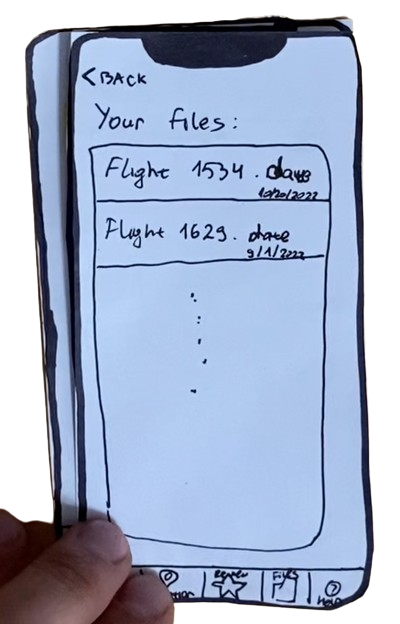 < BACK
Your files:
Flight 1534. date
10/20/2022
Flight 1629. date
9/1/2022
Review
Files
Help